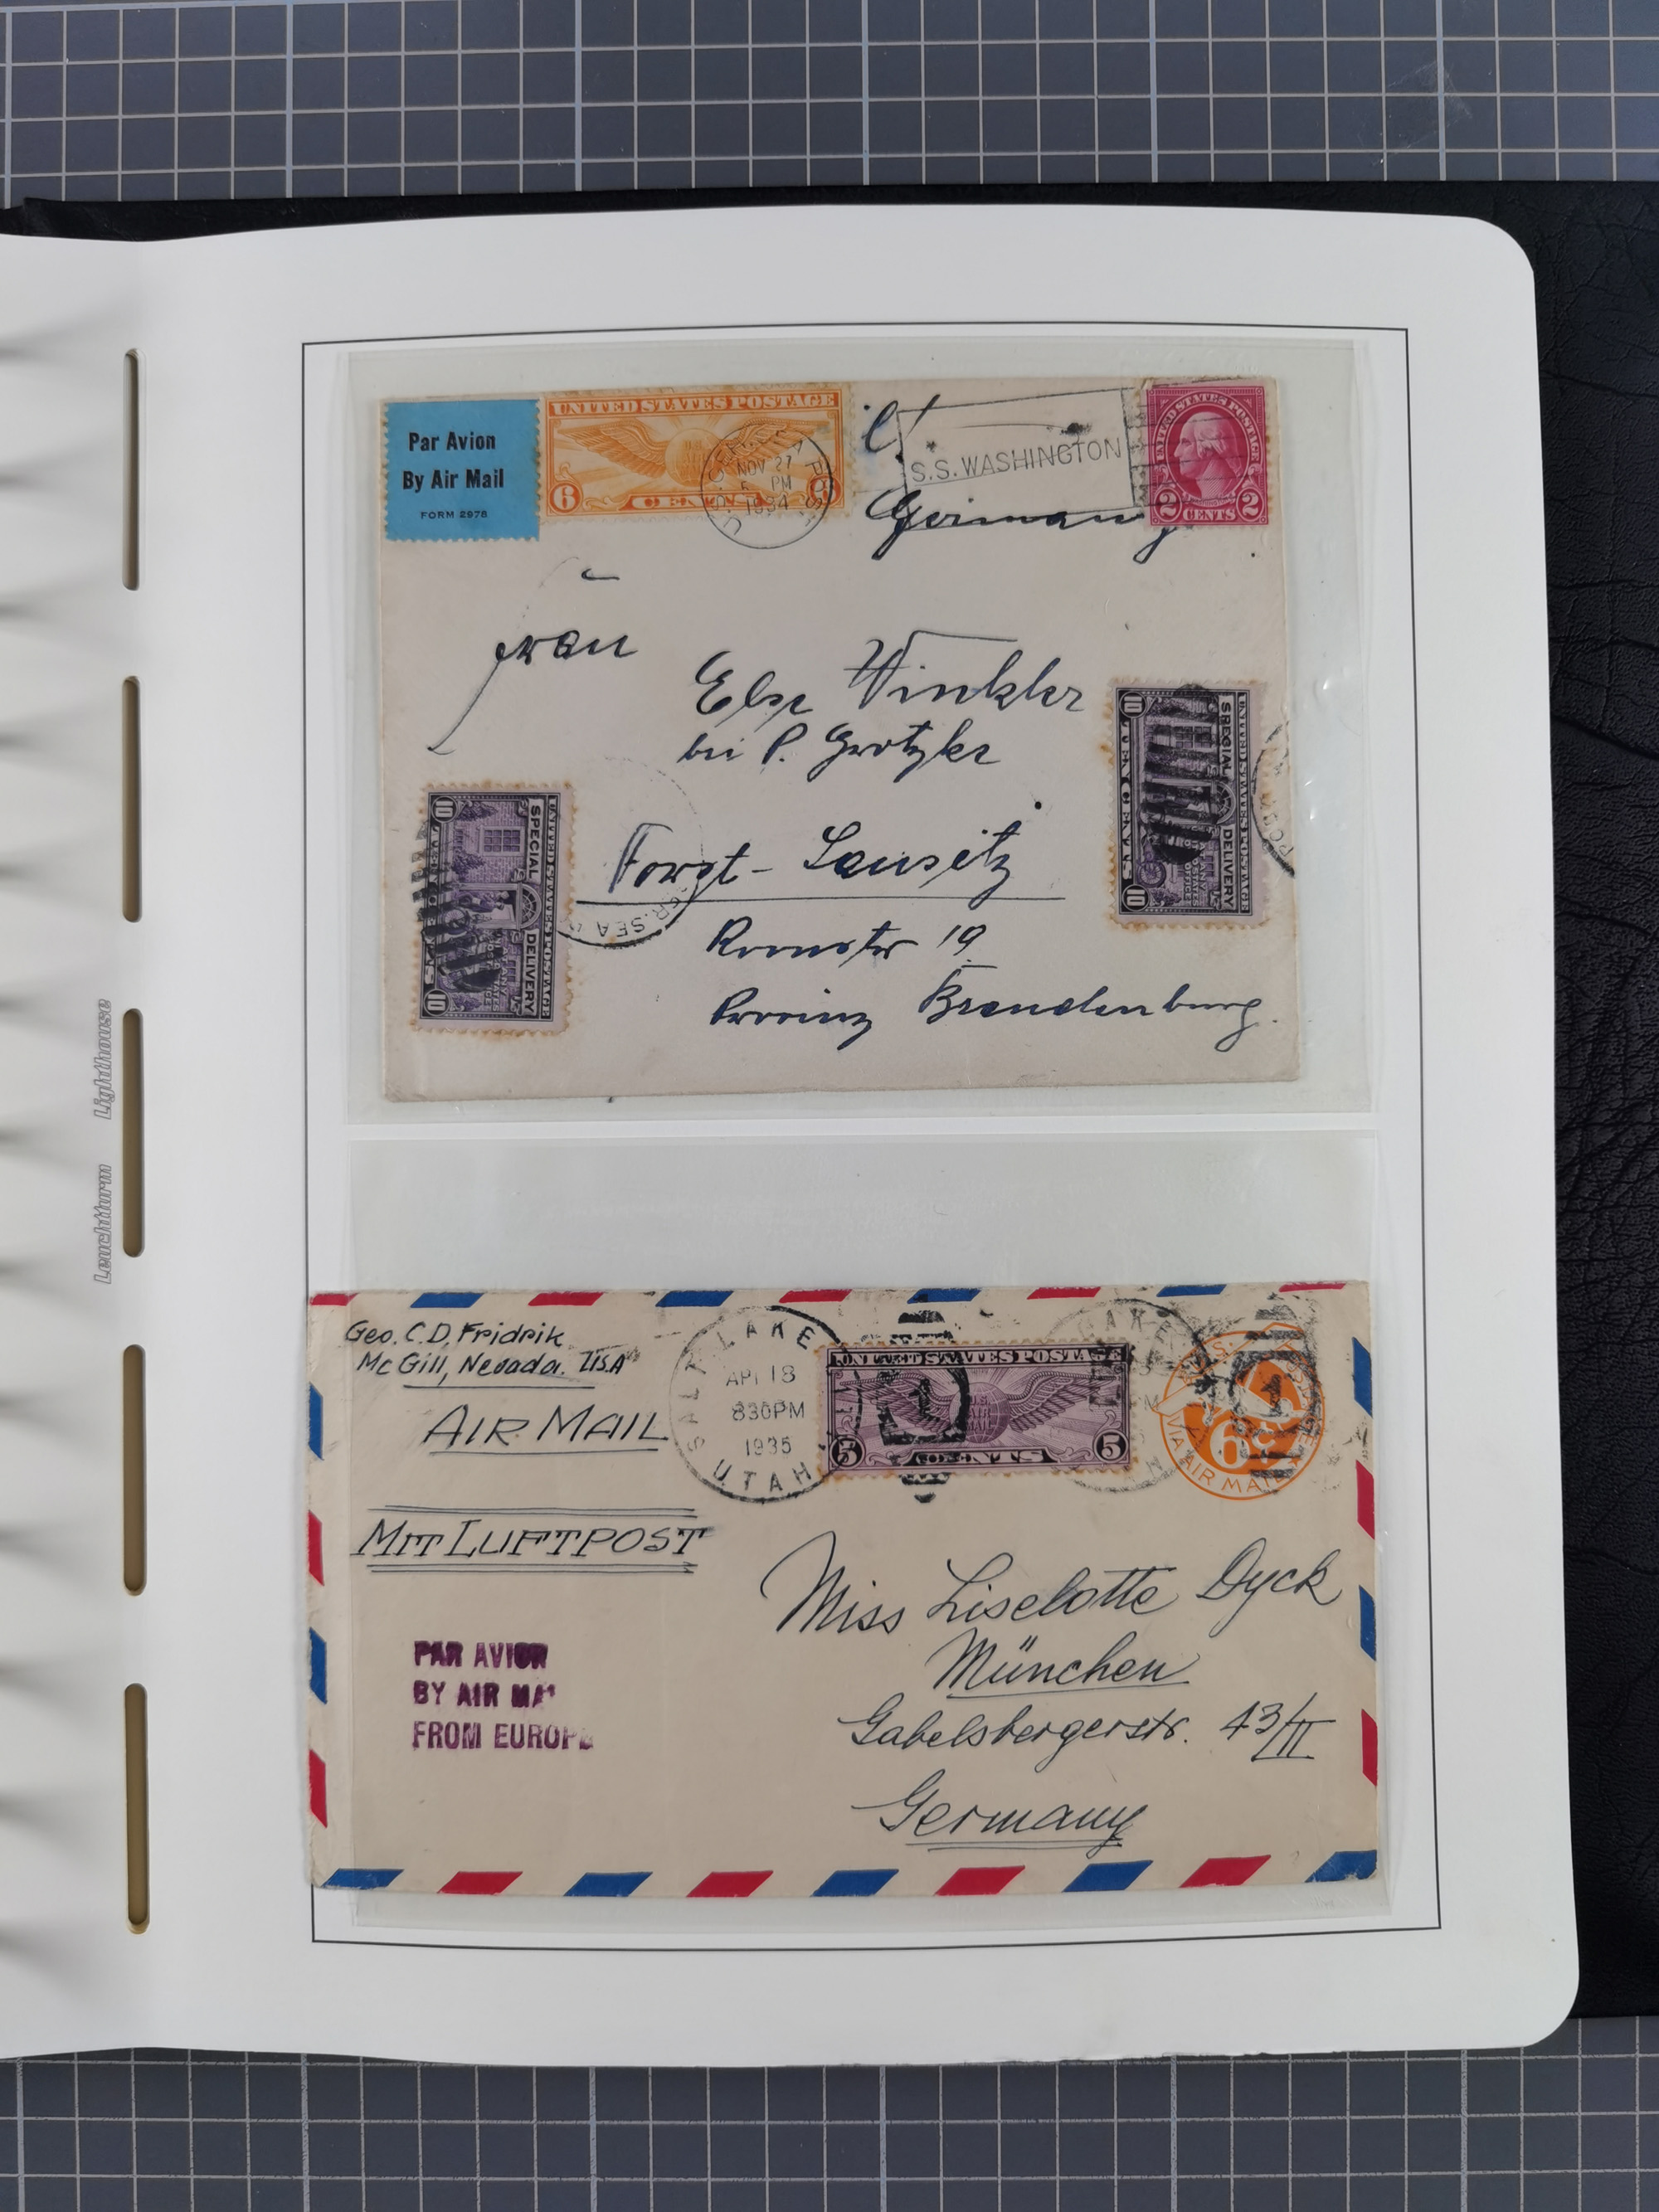 Par Avion
By Air Mail
FORM 2978
UNITED STATES POSTAGE
6 CENTS 6
NOV 27
PM
1934
S.S. WASHINGTON
Germany
UNITED STATES POSTAGE
2 CENTS 2
Frau
Else Winkler
bei P. Grotzke
Forst - Lausitz
Roonstr 19
Provinz Brandenburg.
UNITED STATES POSTAGE
SPECIAL DELIVERY
10
10
UNITED STATES POSTAGE
SPECIAL DELIVERY
10 TEN CENTS 10
SEA
Leuchtturm Lighthouse
Geo. C. D. Fridrik
McGill, Nevada. USA
AIR MAIL
MIT LUFTPOST
SALT LAKE
APR 18
830PM
1935
UTAH
UNITED STATES POSTAGE
5 CENTS 5
LAKE
6¢
VIA AIR MAIL
PAR AVION
BY AIR MA
FROM EUROPE
Miss Liselotte Dyck
München
Gabelsbergerstr. 43/III
Germany